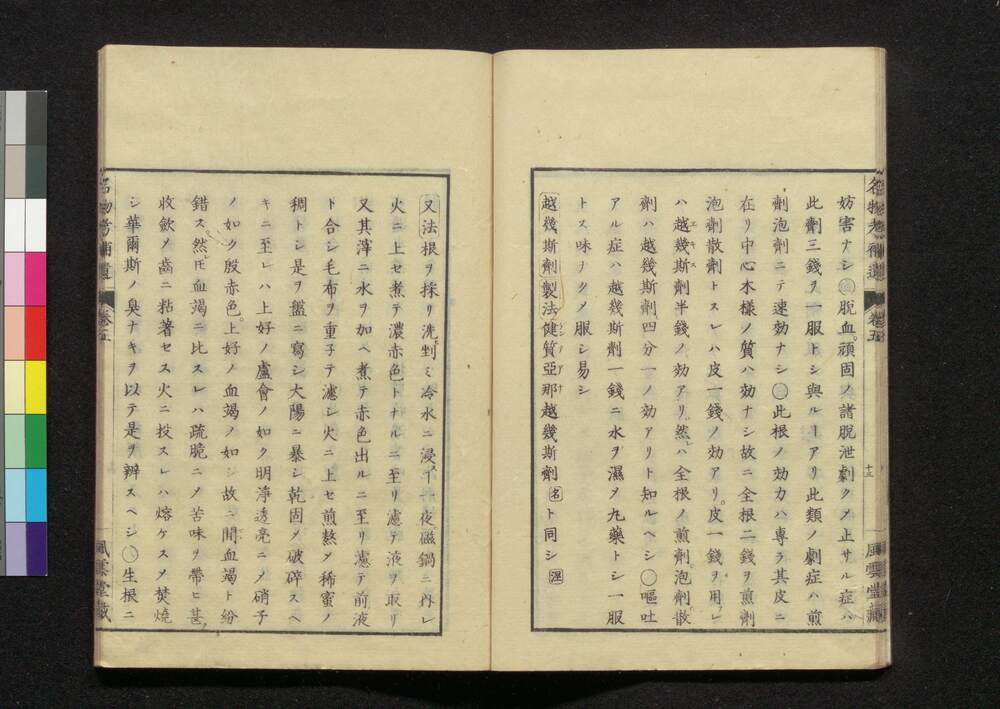 名物考補遺 卷五 十三 風雲堂藏
妨害ナシ○脫血。頑固ノ諸脫泄劇クメ止サル症ハ
此劑三錢ヲ一服トシ與ルヿアリ此類ノ劇症ハ煎
劑泡劑ニテ速効ナシ○此根ノ効力ハ專ラ其皮ニ
在リ中心木樣ノ質ハ効ナシ故ニ全根二錢ヲ煎劑
泡劑散劑トスレハ皮一錢ノ効アリ。皮一錢ヲ用レ
ハ越幾斯劑半錢ノ効アリ。然レハ全根ノ煎劑。泡劑。散
エキス
劑ハ越幾斯劑四分一ノ効アリト知ルヘシ○嘔吐
アル症ハ越幾斯劑一錢ニ水ヲ濕メ丸藥トシ一服
トス味ヲクメ服シ易シ
越幾斯劑製法健質亞那越幾斯劑 名ト同シ 溼
又法根ヲ採リ洗剉ミ冷水ニ浸スヿ一夜磁鍋ニ內レ
火ニ上セ煮テ濃赤色トナルニ至リ濾テ液ヲ取リ
又其滓ニ水ヲ加ヘ煮テ赤色出ルニ至リ濾テ前液
ト合シ毛布ヲ重子テ濾シ火ニ上セ煎熬メ稀蜜ノ
稠トシ是ヲ盤ニ寫シ大陽ニ暴シ乾固メ破碎スヘ
キニ至レハ上好ノ盧會ノ如ク明淨透亮ニメ硝子
ノ如ク殷赤色。上好ノ血竭ノ如シ故ニ間血竭ト紛
錯ス然𪜈血竭ニ比スレハ疏脆ニメ苦味ヲ帶ヒ甚
收歛メ齒ニ粘著セス火ニ投スレハ熔ケスメ焚燒
シ華爾斯ノ臭ナキヲ以テ是ヲ辨スヘシ○生根ニ
名物考補遺 卷五 風雲堂藏